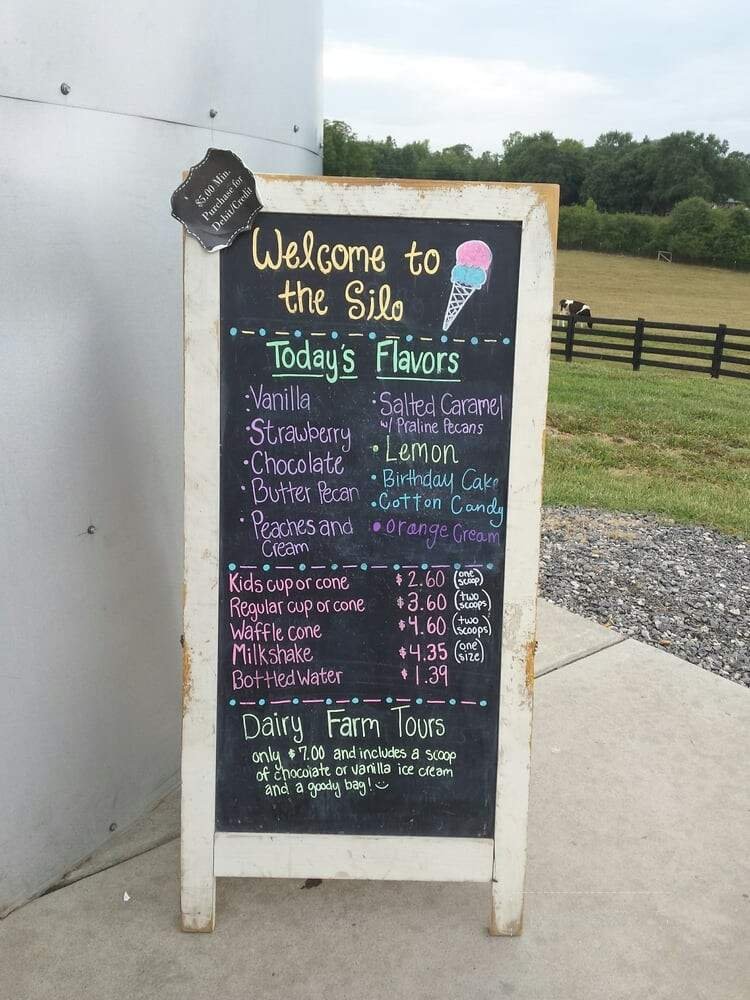 $5.00 Min.
Purchase for
Debit/Credit
Welcome to
the Silo
Today's Flavors
• Vanilla
• Strawberry
• Chocolate
• Butter Pecan
• Peaches and
Cream
• Salted Caramel
w/ Praline Pecans
• Lemon
• Birthday Cake
• Cotton Candy
• Orange Cream
Kids cup or cone $2.60 (one scoop)
Regular cup or cone $3.60 (two scoops)
Waffle cone $4.60 (two scoops)
Milkshake $4.35 (one size)
Bottled Water $1.39
Dairy Farm Tours
only $7.00 and includes a scoop
of chocolate or vanilla ice cream
and a goody bag!